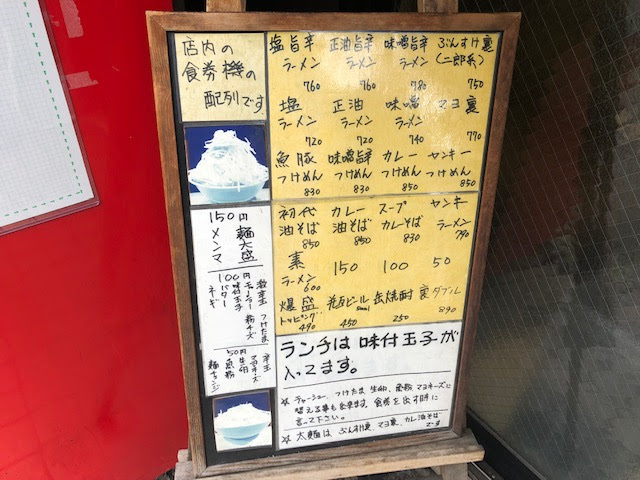 店内の
食券機の
配列です
塩旨辛 正油旨辛 味噌旨辛 ぶんすけ裏
ラーメン ラーメン ラーメン (二郎系)
760 760 780 750
塩 正油 味噌 マヨ裏
ラーメン ラーメン ラーメン
720 720 740 770
魚豚 味噌旨辛 カレー ヤンキー
つけめん つけめん つけめん つけめん
830 830 850 850
初代 カレー スープ ヤンキー
油そば 油そば カレそば ラーメン
850 850 830 790
素 150 100 50
ラーメン
600
爆盛 瓶ビール 缶焼酎 裏ダブル
トッピング
490 450 250 890
150円
麺大盛
メンマ
100円
味付玉子
粉チーズ
バター
ネギ
50円
生卵
マヨネーズ
魚粉
ランチは味付玉子が
入ってます。
☆ チャーシュー、つけたま、生卵、魚粉、マヨネーズに
替える事も出来ます。食券を出す時に
言って下さい。
☆ 太麺は、ぶんすけ裏、マヨ裏、カレ油そば
です